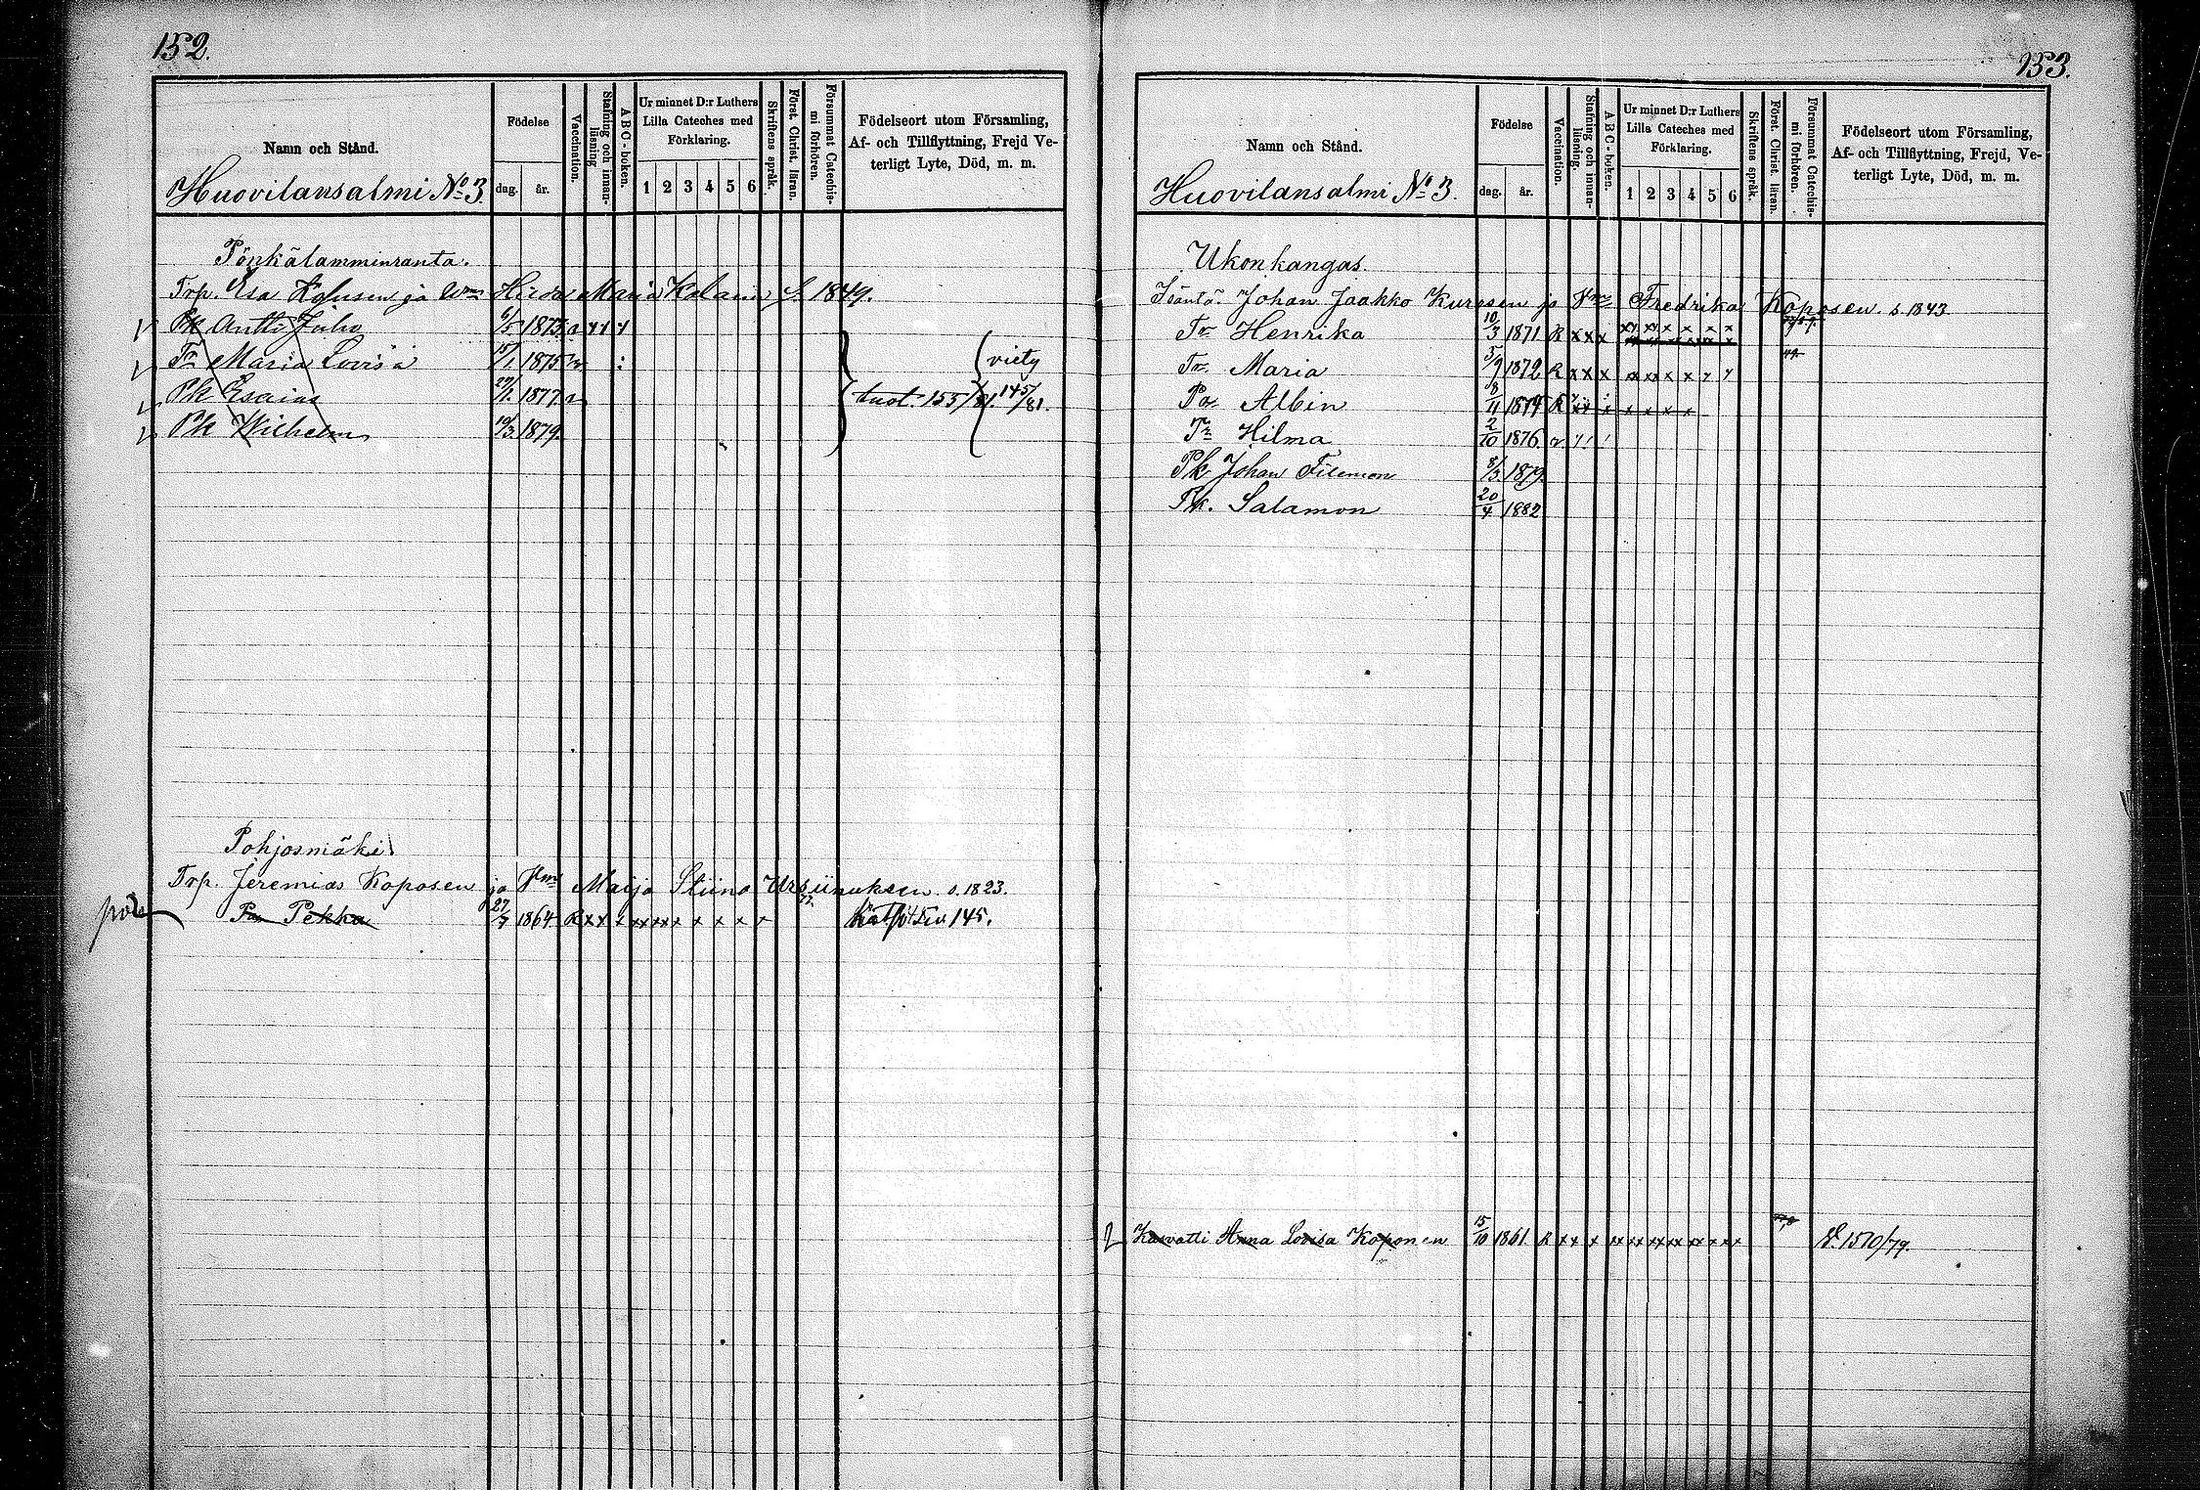 152.
Namn och Stånd.
Huovilansalmi No 3.
Födelse
dag. år.
Vaccination.
Stafning och innan-läsning
ABC-boken.
Ur minnet D:r Luthers
Lilla Cateches med
Förklaring.
1 2 3 4 5 6
Skriftens språk.
Först. Christ. läran.
Försummat Catechis-
mi förhören.
Födelseort utom Församling,
Af- och Tillflyttning, Frejd Ve-
terligt Lyte, Död, m. m.
Pönkälamminranta.
Trp. Esa ja Maria s. 1849.
Pk Antti Juho 6/5 1873
Tr Maria Lovisa 15/1 1875 viety
Pk Esaias 1877 tuot. 155/81. 145/81.
Pk Wilhelm 19/3 1879
Pohjosmäki
Trp. Jeremias Koposen ja Vmo Maija Stiina s. 1823.
Po Pekka 27/7 1864 R x x x xx xx x x x x x 145.
153.
Namn och Stånd.
Huovilansalmi No 3.
Födelse
dag. år.
Vaccination.
Stafning och innan-läsning.
ABC-boken.
Ur minnet D:r Luthers
Lilla Cateches med
Förklaring.
1 2 3 4 5 6
Skriftens språk.
Först. Christ. läran.
Försummat Catechis-
mi förhören.
Födelseort utom Församling,
Af- och Tillflyttning, Frejd, Ve-
terligt Lyte, Död, m. m.
Ukonkangas.
Isäntä. Johan Jaakko Kurosen ja Vmo Fredrika Koposen s. 1843
Tr Henrika 10/3 1871 R x x x
Tr Maria 5/9 1872 R x x x
Po Albin 8/11 1874 R
Tr Hilma 2/10 1876
Pk Johan Filemon 8/3 1879.
Pk. Salamon 20/4 1882
Kasvatti Anna Lovisa Koponen 15/10 1861 R xx x xx xx xx xx xx x x x